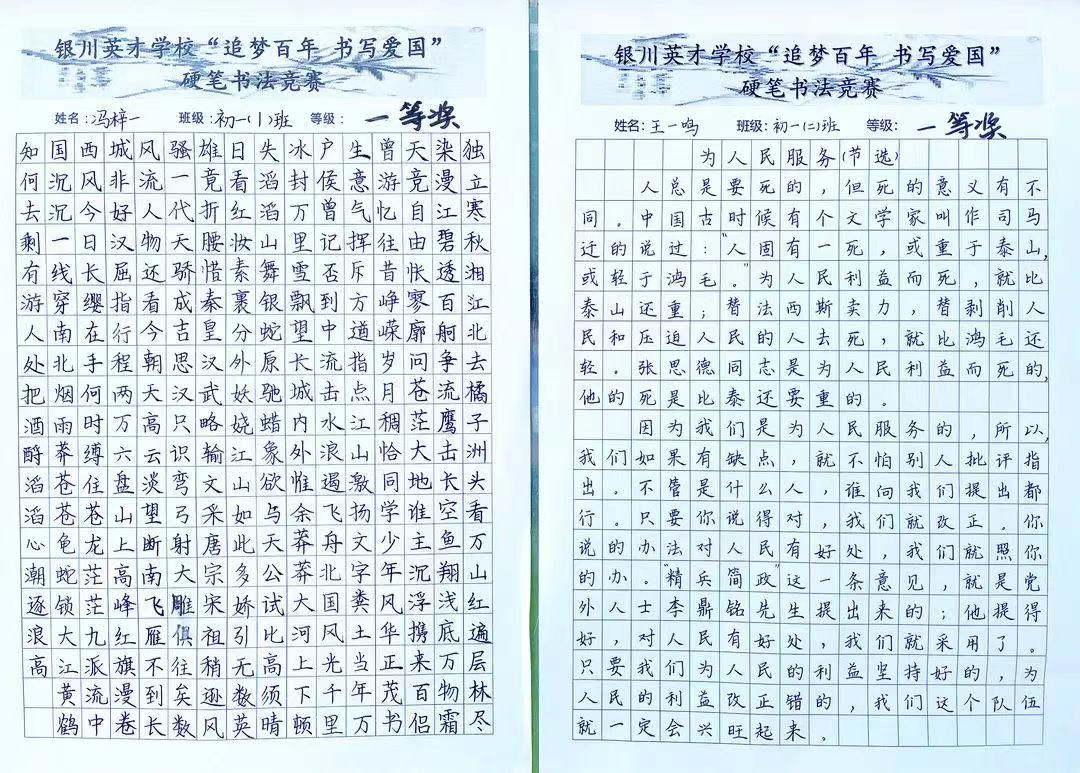 银川英才学校“追梦百年 书写爱国”
硬笔书法竞赛
姓名:冯梓一 班级:初一(1)班 等级:一等奖
独立寒秋湘江北去橘子洲头看万山红遍层林尽
染漫江碧透百舸争流鹰击长空鱼翔浅底万物霜
天竞自由怅寥廓问苍茫大地谁主沉浮携来百侣
曾游忆往昔峥嵘岁月稠恰同学少年风华正茂书
生意气挥斥方道指点江山激扬文字粪土当年万
户侯曾记否到中流击水浪遏飞舟北国风光千里
冰封万里雪飘望长城内外惟余莽莽大河上下顿
失滔滔山舞银蛇原驰蜡象欲与天公试比高须晴
日看红妆素裹分外妖娆江山如此多娇引无数英
雄竟折腰惜秦皇汉武略输文采唐宗宋祖稍逊风
骚一代天骄成吉思汉只识弯弓射大雕俱往矣数
风流人物还看今朝天高云淡望断南飞雁不到长
城非好汉屈指行程两万六盘山上高峰红旗漫卷
西风今日长缨在手何时缚住苍龙茫茫九派流中
国沉沉一线穿南北烟雨莽苍苍龟蛇锁大江黄鹤
知何去剩有游人处把酒酹滔滔心潮逐浪高
银川英才学校“追梦百年 书写爱国”
硬笔书法竞赛
姓名:王一鸣 班级:初一(二)班 等级:一等奖
为人民服务(节选)
人总是要死的,但死的意义有不
同。中国古时候有个文学家叫作司马
迁的说过:“人固有一死,或重于泰山,
或轻于鸿毛。”为人民利益而死,就比
泰山还重;替法西斯卖力,替剥削人
民和压迫人民的人去死,就比鸿毛还
轻。张思德同志是为人民利益而死的,
他的死是比泰还要重的。
因为我们是为人民服务的,所以,
我们如果有缺点,就不怕别人批评指
出。不管是什么人,谁向我们提出都
行。只要你说得对,我们就改正。你
说的办法对人民有好处,我们就照你
的办。“精兵简政”这一条意见,就是党
外人士李鼎铭先生提出来的;他提得
好,对人民有好处,我们就采用了。
只要我们为人民的利益坚持好的,为
人民的利益改正错的,我们这个队伍
就一定会兴旺起来。